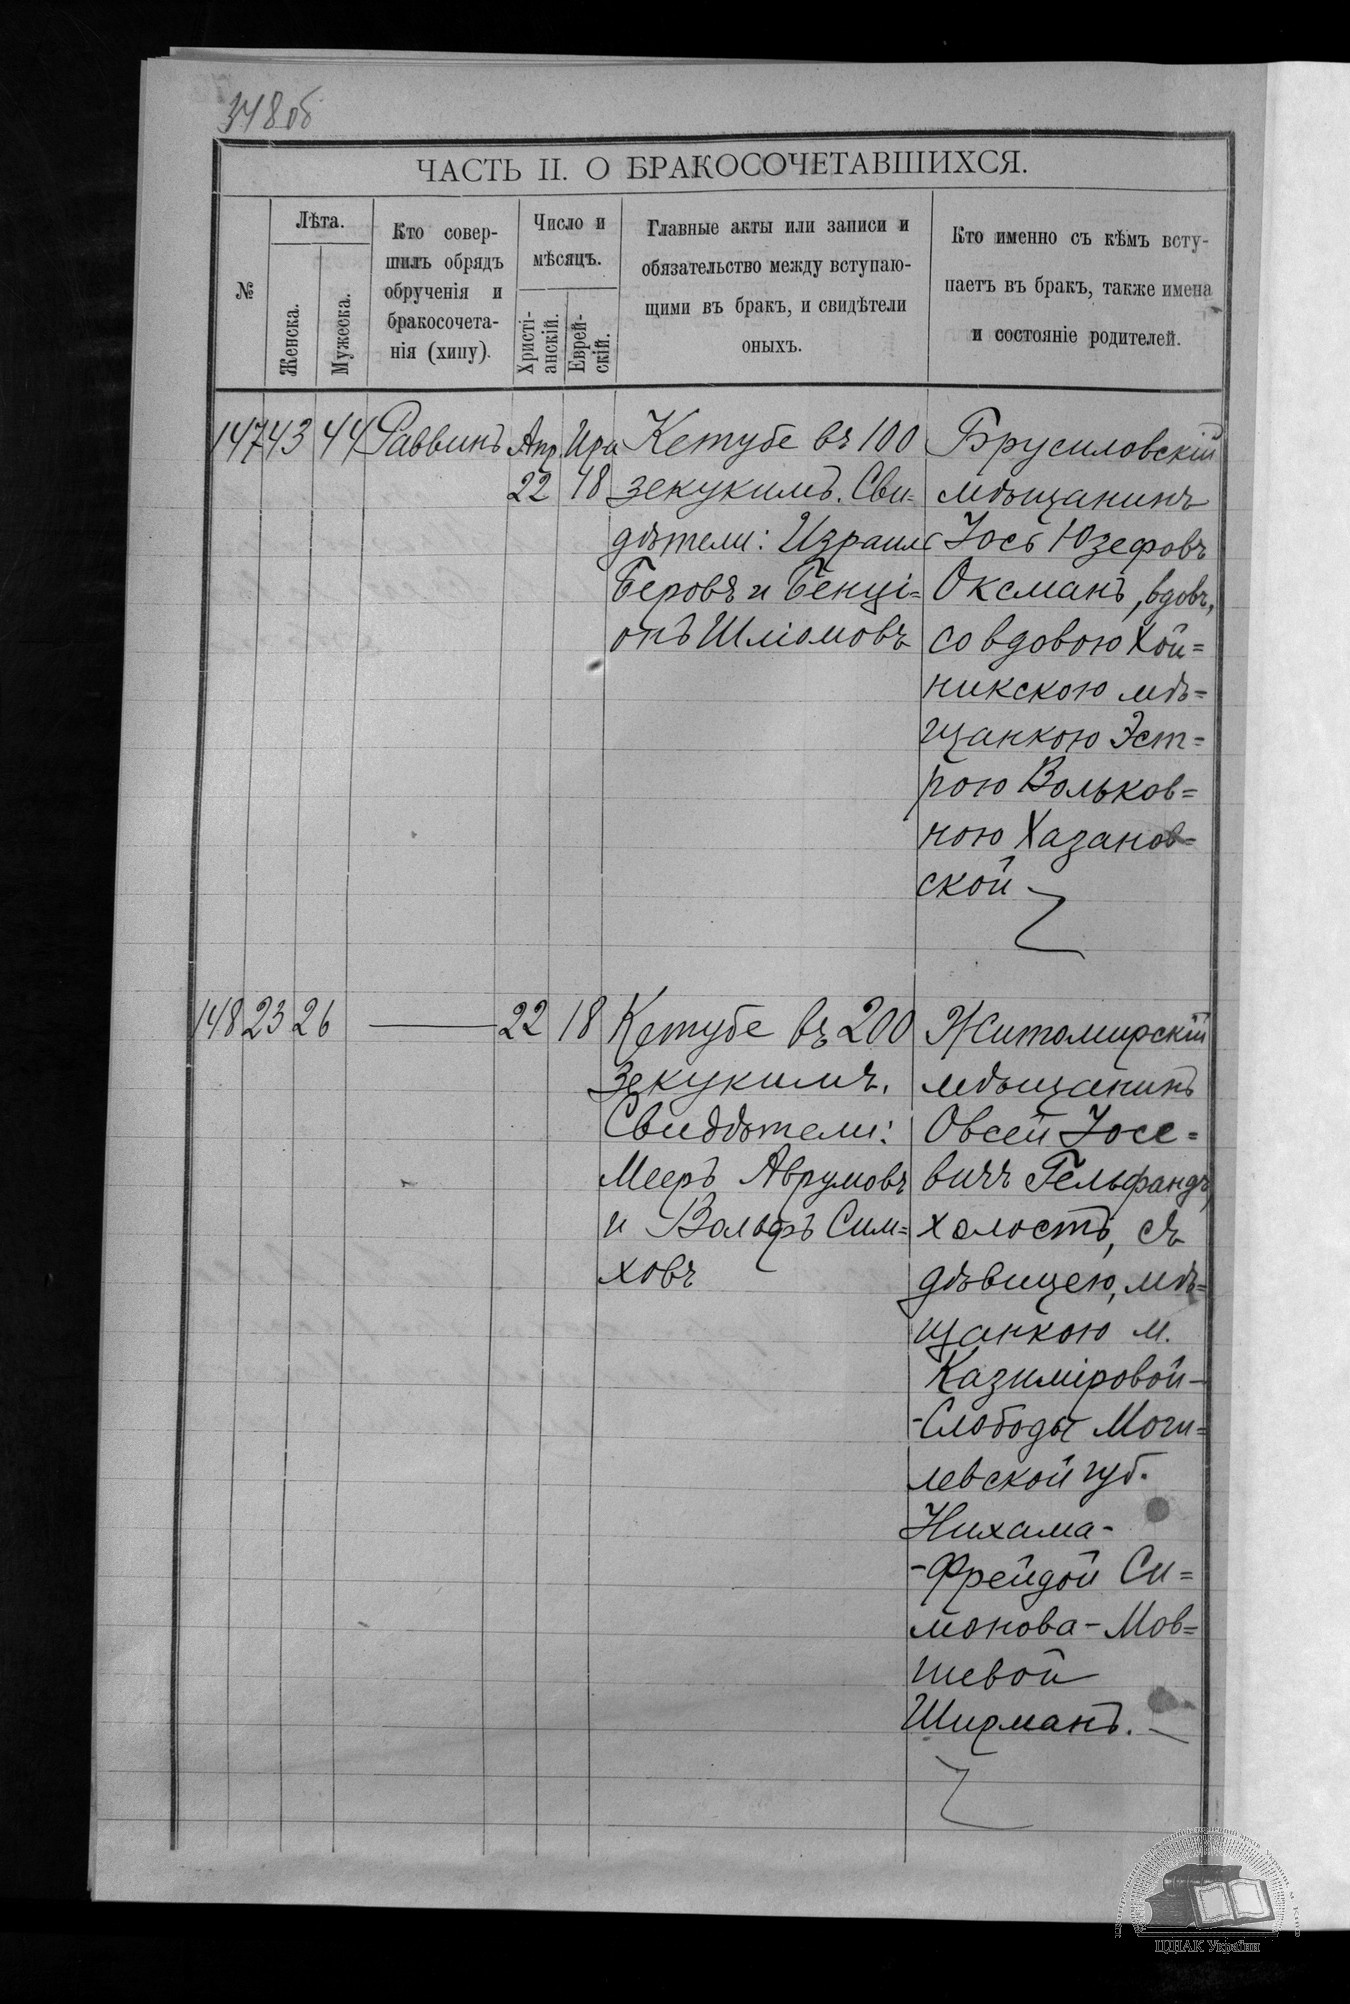 348 об
ЧАСТЬ II. О БРАКОСОЧЕТАВШИХСЯ.
№
Лѣта.
Женска.
Мужеска.
Кто совер-
шилъ обрядъ
обрученія и
бракосочета-
нія (хипу).
Число и
мѣсяцъ.
Христі-
анскій.
Еврей-
скій.
Главные акты или записи и
обязательство между вступаю-
щими въ бракъ, и свидѣтели
оныхъ.
Кто именно съ кѣмъ всту-
паетъ въ бракъ, также имена
и состояніе родителей.
147 43 44 Раввинъ Апр. Ира
22 18
Кетубе въ 100
зекукимъ. Сви=
дѣтели: Израиль
Беровъ и Бенці=
онъ Шліомовъ
Брусиловскій
мѣщанинъ
Іось Юзефовъ
Оксманъ, вдовъ,
со вдовою Хой=
никскою мѣ=
щанкою Эст=
рою Вольков=
ною Хазанов=
ской
148 23 26 — 22 18
Кетубе въ 200
зекукимъ.
Свидѣтели:
Мееръ Аврумовъ
и Вольфъ Сим=
ховъ
Житомирскій
мѣщанинъ
Овсей Іосе=
вичъ Гельфандъ,
холостъ, съ
дѣвицею, мѣ=
щанкою м.
Казиміровой-
-Слободы Моги=
левской губ.
Нихама-
-Фрейдой Си=
монова-Мов=
шевой
Ширманъ.
ЦДІАК України